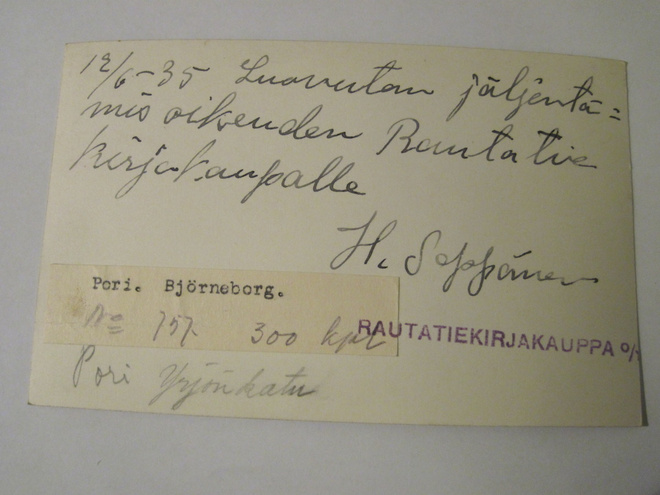 12/6-35 Luovutan jäljentä=
mis oikeuden Rautatie
kirjakaupalle
H. Seppänen
Pori. Björneborg.
No 757. 300 kpl
RAUTATIEKIRJAKAUPPA O/Y
Pori Yrjönkatu